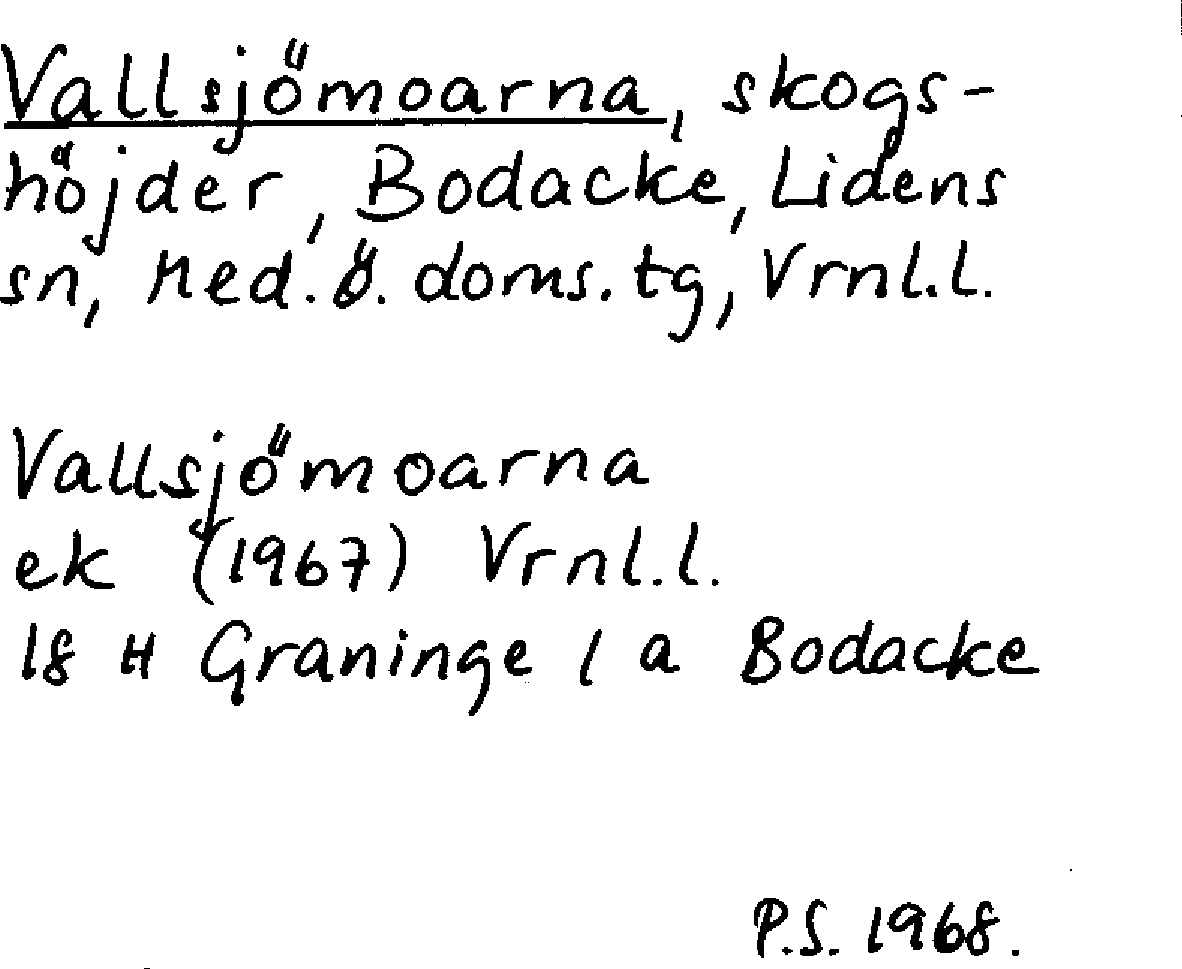 Vallsjömoarna, skogs-
höjder, Bodacke, Lidens
sn, Med. ö. doms. tg, Vrnl.l.
Vallsjömoarna
ek (1967) Vrnl.l.
18 H Graninge 1 a Bodacke
P.S. 1968.